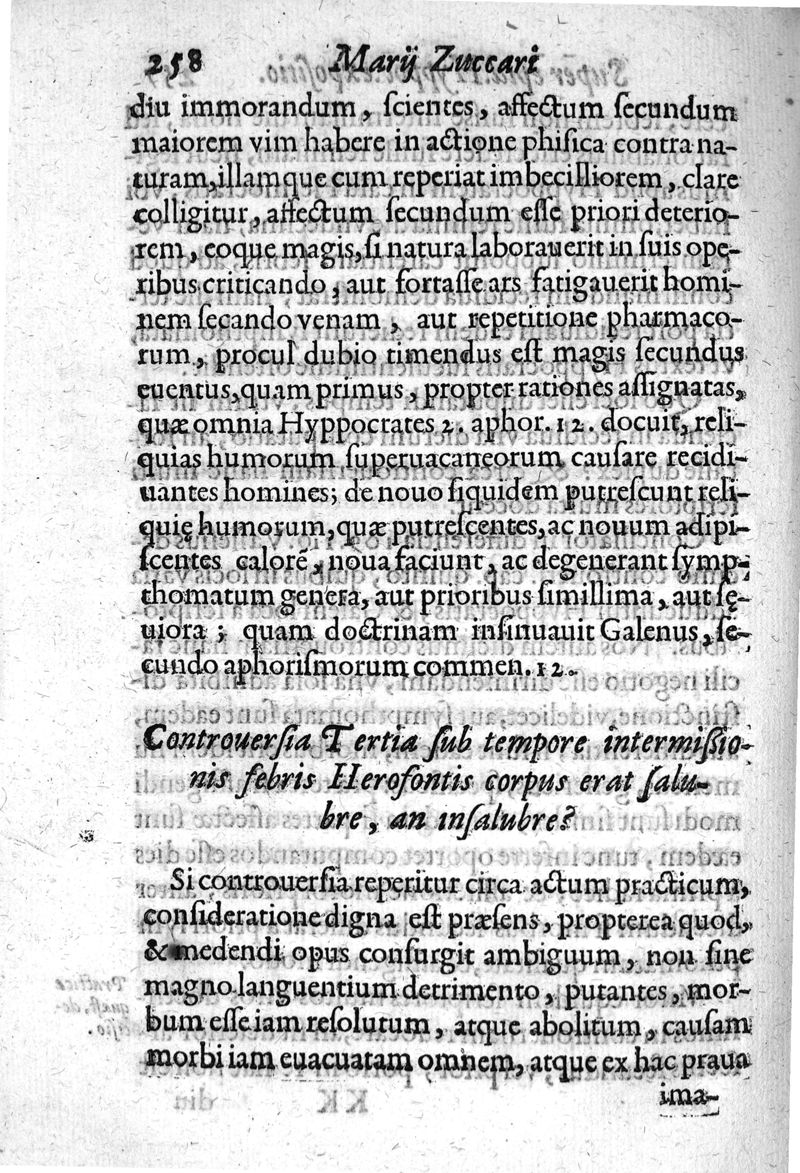 258 Marij Zuccari
diu immorandum, ſcientes, affectum ſecundum
maiorem vim habere in actione phiſica contra na-
turam, illamque cum reperiat imbecilliorem, clare
colligitur, affectum ſecundum eſſe priori deterio-
rem, eoque magis, ſi natura laborauerit in ſuis ope-
ribus criticando, aut fortaſſe ars fatigauerit homi-
nem ſecando venam, aut repetitione pharmaco-
rum, procul dubio timendus eſt magis ſecundus
euentus, quam primus, propter rationes aſſignatas,
quæ omnia Hyppocrates 2. aphor. 12. docuit, reli-
quias humorum ſuperuacaneorum cauſare recidi-
uantes homines; de nouo ſiquidem putreſcunt reli-
quię humorum, quæ putreſcentes, ac nouum adipi-
ſcentes calorē, noua faciunt, ac degenerant ſymp-
thomatum genera, aut prioribus ſimillima, aut ſę-
uiora; quam doctrinam inſinuauit Galenus, ſe-
cundo aphoriſmorum commen. 12.
Controuerſia Tertia ſub tempore intermiſſio-
nis febris Herofontis corpus erat ſalu-
bre, an inſalubre?
Si controuerſia reperitur circa actum practicum,
conſideratione digna eſt præſens, propterea quod,
& medendi opus conſurgit ambiguum, non ſine
magno languentium detrimento, putantes, mor-
bum eſſe iam reſolutum, atque abolitum, cauſam
morbi iam euacuatam omnem, atque ex hac praua
ima-